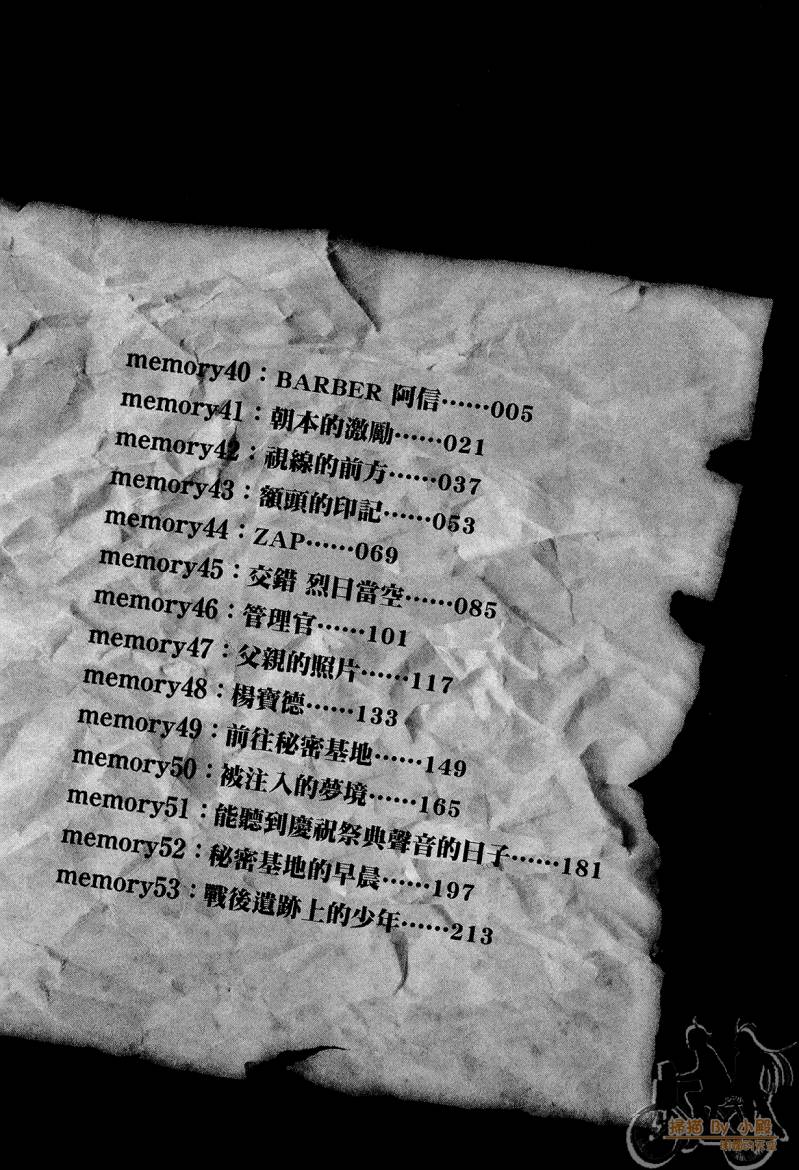 memory40：BARBER 阿信⋯⋯005
memory41：朝本的激勵⋯⋯021
memory42：視線的前方⋯⋯037
memory43：額頭的印記⋯⋯053
memory44：ZAP⋯⋯069
memory45：交錯 烈日當空⋯⋯085
memory46：管理官⋯⋯101
memory47：父親的照片⋯⋯117
memory48：楊寶德⋯⋯133
memory49：前往秘密基地⋯⋯149
memory50：被注入的夢境⋯⋯165
memory51：能聽到慶祝祭典聲音的日子⋯⋯181
memory52：秘密基地的早晨⋯⋯197
memory53：戰後遺跡上的少年⋯⋯213
掃描 By 小殿